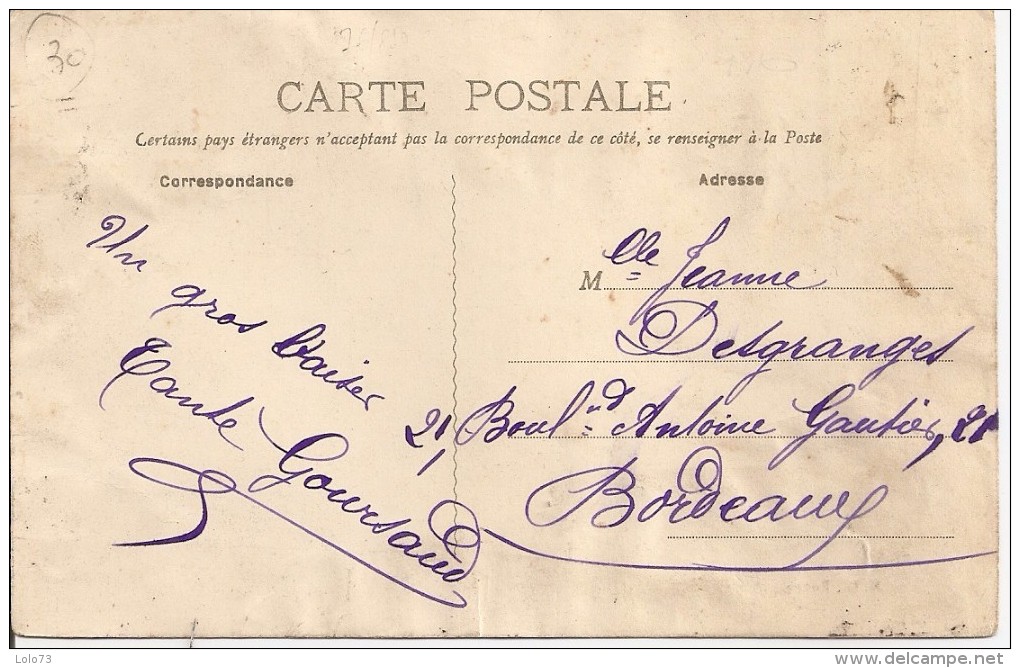 30
CARTE POSTALE
Certains pays étrangers n'acceptant pas la correspondance de ce côté, se renseigner à la Poste
Correspondance
Un
gros baiser
Tante
Goursaud
Adresse
Mlle Jeanne
Desgranges
21, Boul.d Antoine Gautier, 21
Bordeaux
Lolo73
www.delcampe.net